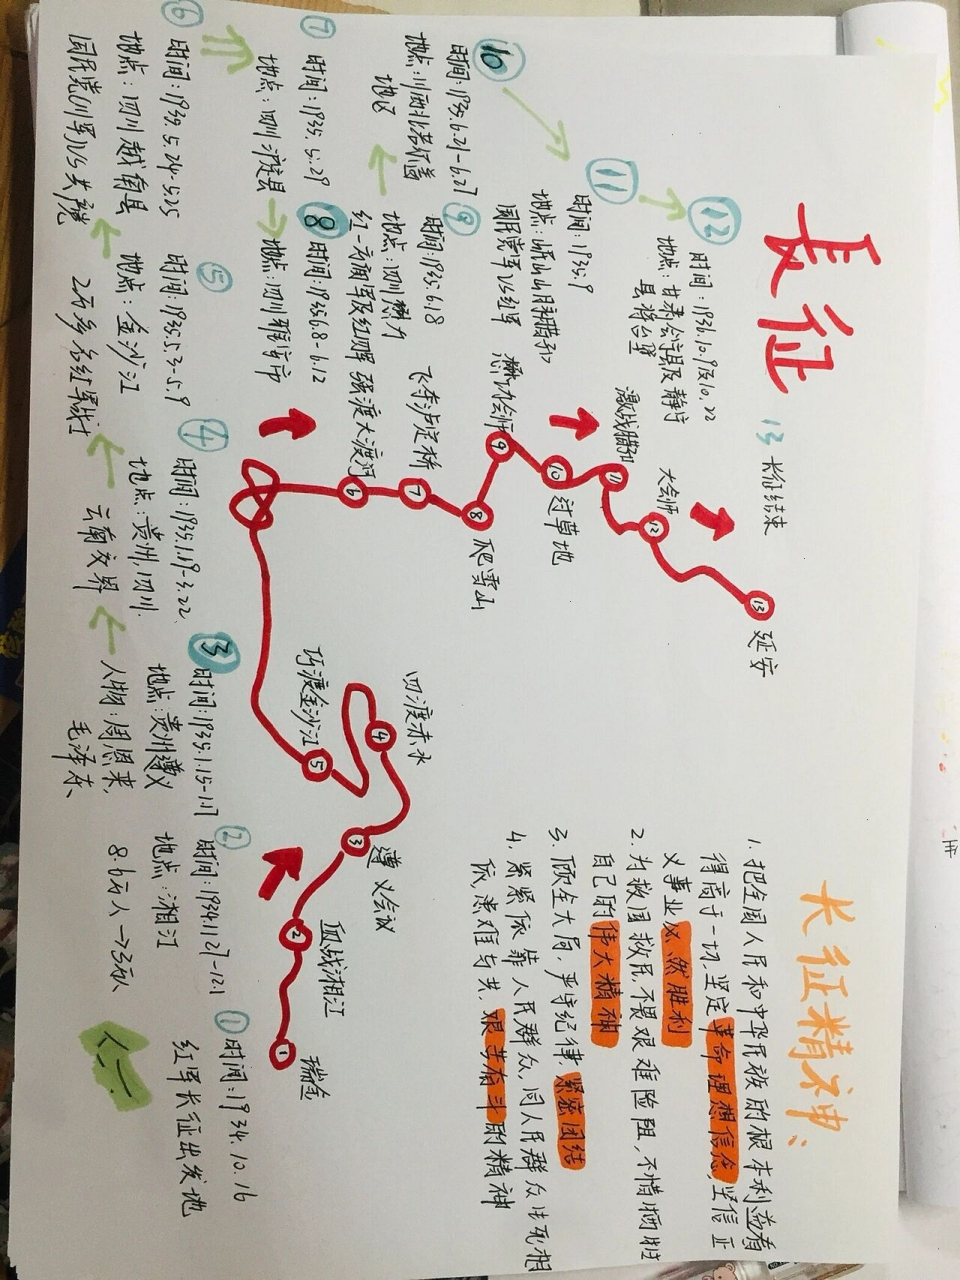 长征
13 长征结束
12
时间：1936.10.9及10.22
地点：甘肃会宁县及静宁
县将台堡
11
时间：1935.9
地点：岷山山脉腊子
国民党军VS红军
10
时间：1935.6.21-6.27
地点：川西北若尔盖
地区
9
时间：1935.6.18
地点：四川懋力
红一方面军及红四军
8
时间：1935.6.8-6.12
地点：四川雅安市
7
时间：1935.5.29
地点：四川泸定县
6
时间：1935.5.24-5.25
地点：四川越嶲县
国民党川军VS共党
5
时间：1935.5.3-5.9
地点：金沙江
2万多名红军战士
4
时间：1935.1.19-3.22
地点：贵州，四川，
云南交界
3
时间：1935.1.15-1.17
地点：贵州遵义
人物：周恩来，
毛泽东
2
时间：1934.11.27-12.1
地点：湘江
8.6万人→3万人
1
时间：1934.10.16
红军长征出发地
13 延安
12 大会师
11 激战腊子
10 过草地
9 懋功会师
8 爬雪山
7 飞夺泸定桥
6 强渡大渡河
5 巧渡金沙江
4 四渡赤水
3 遵义会议
2 血战湘江
1 瑞金
长征精神：
1. 把全国人民和中华民族的根本利益看
得高于一切，坚定革命理想信念，坚信正
义事业必然胜利
2. 为救国救民，不畏艰难险阻，不惜牺牲
自己的伟大精神
3. 顾全大局，严守纪律，紧密团结
4. 紧紧依靠人民群众，同人民群众生死相
依，患难与共，艰苦奋斗的精神